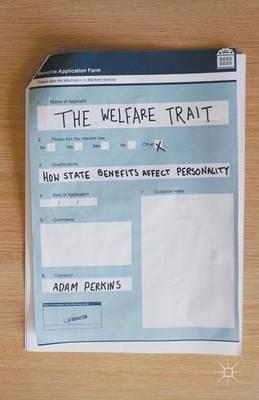 Benefits Application Form
Please enter the information on this form carefully
1. Name of Applicant
THE WELFARE TRAIT
2. Please tick the relevant box
Mr Mrs Miss Ms Other X
3. Qualifications
HOW STATE BENEFITS AFFECT PERSONALITY
4. Date of Application
/ /
7. Guidance notes
5. Comments
6. Signature
ADAM PERKINS